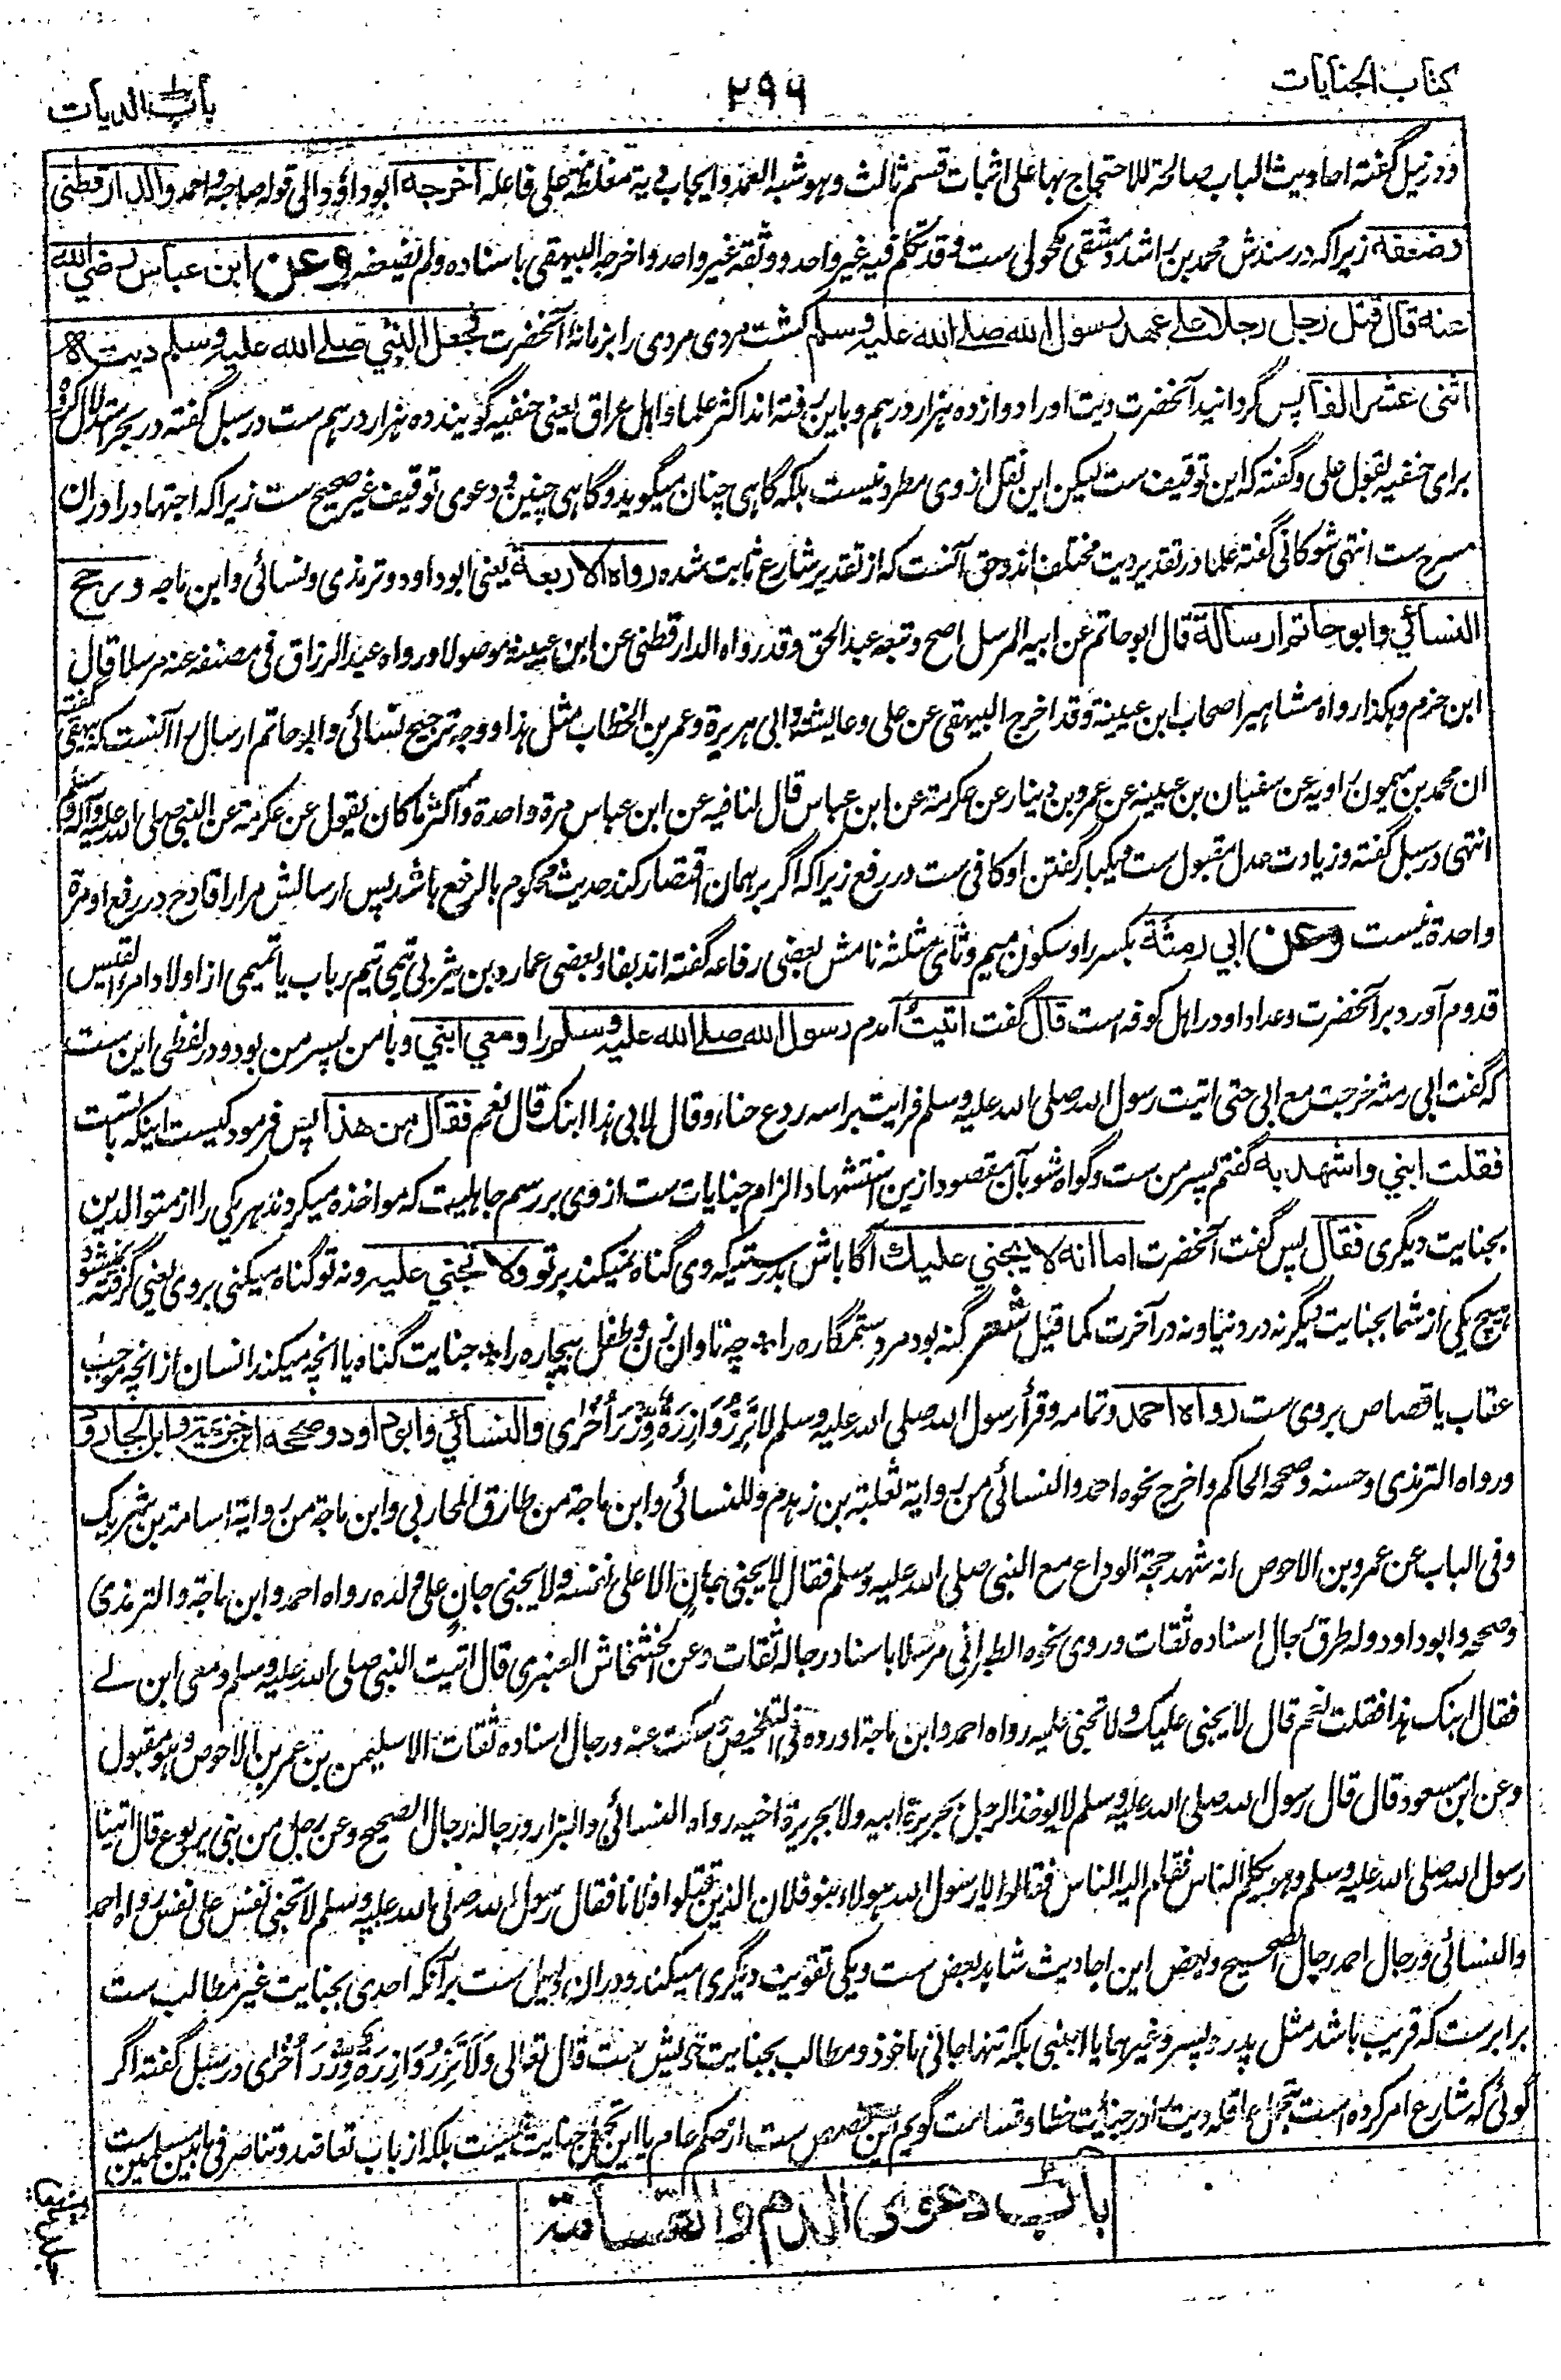 كتاب الجنايات
۲۹۶
باب الديات
و در نیل گفته احادیث الباب صالحة للاحتجاج بها علی اثبات قسم ثالث و هو شبه العمد و ایجاب دیة مغلظة علی فاعله اخرجه ابو داؤد الی قوله صاحبه و احمد والدارقطني
وضعفه زیرا که در سندش محمد بن راشد دمشقی مکحولی ست و قد تکلم فیه غیر واحد و وثقه غیر واحد و اخرجه البیهقی باسناده و لم یضعفه وعن ابن عباس رضي الله
عنه قال قتل رجل رجلا على عهد رسول الله صلى الله عليه وسلم کشت مردی مردی را بزمانهٔ آنحضرت فجعل النبي صلى الله عليه وسلم ديته
اثني عشر الفا پس گردانید آنحضرت دیت او را دوازده هزار درهم و باین رفته اند اکثر علما و اهل عراق یعنی حنفیه گویند ده هزار درهم ست در سبل گفته در بحر استدلال کرده
برای حنفیه بقول علی و گفته که این توقیف ست لیکن این نقل از وی مطرد نیست بلکه گاهی چنان میگوید و گاهی چنین و دعوی توقیف غیر صحیح ست زیرا که اجتهاد را دران
مسرح ست انتهی شوکانی گفته علما در تقدیر دیت مختلف اند و حق آنست که از تقدیر شارع ثابت شده رواه الاربعة یعنی ابو داود و ترمذی و نسائی و ابن ماجه ورجح
النسائي وابو حاتم ارساله قال ابو حاتم عن ابیه المرسل اصح و تبعه عبد الحق و قد رواه الدارقطنی عن ابن عیینة موصولا و رواه عبد الرزاق فی مصنفه عنه مرسلا قال
ابن حزم و هکذا رواه مشاهیر اصحاب ابن عیینة و قد اخرج البیهقی عن علی و عایشة و ابی هریرة و عمر بن الخطاب مثل هذا و وجه ترجیح نسائی و ابو حاتم ارسال را آنست که بیهقی گفته
ان محمد بن میمون راویه عن سفیان بن عیینة عن عمرو بن دینار عن عکرمة عن ابن عباس قال لنا فیه عن ابن عباس مرة واحدة و اکثر ما کان یقول عن عکرمة عن النبی صلی الله علیه وآله وسلم
انتهی در سبل گفته و زیادت عدل مقبول ست و یکبار گفتن او کافی ست در رفع زیرا که اگر بر همان اقتصار کند حدیث محکوم بالرفع باشد پس ارسالش مرارا قادح در رفع او مرة
واحدة نیست وعن ابي رمثة بکسر را و سکون میم و ثای مثلثه نامش بعضی رفاعه گفته اند بفا و بعضی عماره بن یثربی تیمی تیم رباب یا تمیمی از اولاد امرأ القیس
قدوم آورد بر آنحضرت و عداد او در اهل کوفه است قال گفت اتيت آمدم رسول الله صلى الله عليه وسلم را ومعي ابني و با من پسر من بود و در لفظی این ست
که گفت ابی رمثه خرجت مع ابی حتی اتیت رسول الله صلی الله علیه وسلم فرایت براسه ردع حناء و قال لابی هذا ابنک قال نعم فقال من هذا پس فرمود کیست اینکه با تست
فقلت ابني واشهد به گفتم پسر من ست و گواه شو بآن مقصود ازین استشهاد الزام جنایات ست از وی بر رسم جاهلیت که مواخذه میکردند هر یکی را از متوالدین
بجنایت دیگری فقال پس گفت آنحضرت اما انه لا يجني عليك آگاه باش بدرستیکه وی گناه نمیکند بر تو ولا تجني عليه و نه تو گناه میکنی بر وی یعنی گرفته نمیشود
هیچ یکی از شما بجنایت دیگر نه در دنیا و نه در آخرت کما قیل شعر گنه بود مرد ستمگاره را * چه تاوان زن و طفل بیچاره را * جنایت گناه یا آنچه میکند انسان از آنچه موجب
عقاب یا قصاص بر وی ست رواه احمد و تمامه و قرأ رسول الله صلی الله علیه وسلم لا تَزِرُ وَازِرَةٌ وِّزْرَ أُخْرٰى والنسائي وابو داود وصححه ابن خزيمة وابن الجارود
و رواه الترمذی و حسنه و صححه الحاکم و اخرج نحوه احمد والنسائی من روایة ثعلبة بن زهدم و للنسائی و ابن ماجة من طارق المحاربی و ابن ماجة من روایة اسامة بن شریک
و فی الباب عن عمرو بن الاحوص انه شهد حجة الوداع مع النبی صلی الله علیه وسلم فقال لا یجنی جان الا علی نفسه و لا یجنی جان علی ولده رواه احمد و ابن ماجة و الترمذی
و صححه و ابو داود و له طرق رجال اسناده ثقات و روی نحوه الطبرانی مرسلا باسناد رجاله ثقات و عن الخشخاش العنبری قال اتیت النبی صلی الله علیه وسلم و معی ابن لے
فقال ابنک هذا فقلت نعم قال لا یجنی علیک و لا تجنی علیه رواه احمد و ابن ماجة اورده فی التلخیص و سکت عنه و رجال اسناده ثقات الا سلیمن بن عمرو بن الاحوص و هو مقبول
و عن ابن مسعود قال قال رسول الله صلی الله علیه وسلم لا یوخذ الرجل بجریرة ابیه و لا بجریرة اخیه رواه النسائی و البزار و رجاله رجال الصحیح و عن رجل من بنی یربوع قال اتینا
رسول الله صلی الله علیه وسلم و هو یکلم الناس فقام الیه الناس فقالوا یا رسول الله هولاء بنو فلان الذین قتلوا فلانا فقال رسول الله صلی الله علیه وسلم لا تجنی نفس علی نفس رواه احمد
والنسائی و رجال احمد رجال الصحیح و بعض این احادیث شاهد بعض ست و یکی تقویت دیگری میکند و دران دلیل ست برآنکه احدی بجنایت غیر مطالب ست
برابرست که قریب باشد مثل پدر و پسر و غیرهما یا اجنبی بلکه تنها جانی ماخوذ و مطالب بجنایت خویش ست قال تعالی وَلَا تَزِرُ وَازِرَةٌ وِّزْرَ أُخْرٰى در سبل گفته اگر
گوئی که شارع امر کرده است بتحمل عاقله دیت را در جنایت خطا و قسامت گویم این مخصص ست از حکم عام یا این تحمل جنایت نیست بلکه از باب تعاضد و تناصر فی مابین مسلمین ست
باب دعوى الدم والقسامة